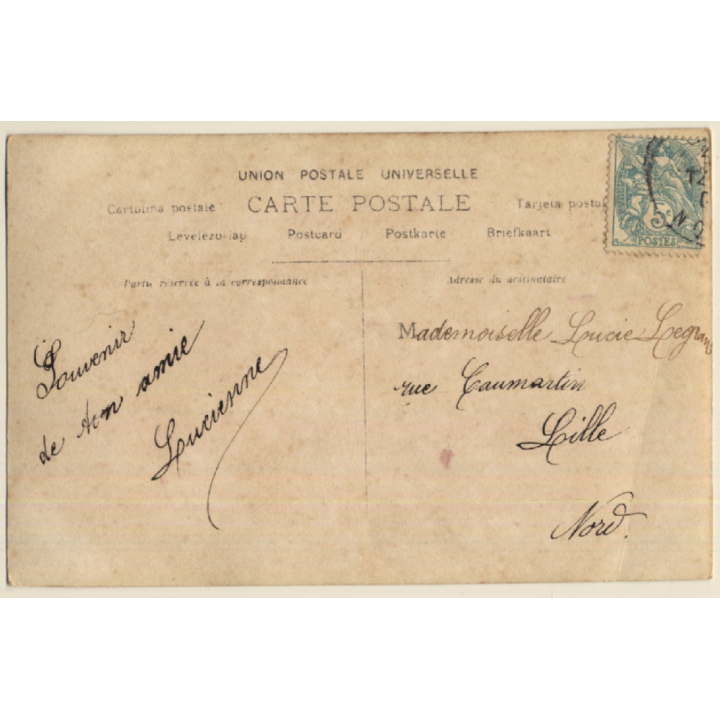 UNION POSTALE UNIVERSELLE
CARTE POSTALE
Cartolina postale Tarjeta postal
Levelezo-lap Postcard Postkarte Briefkaart
Partie réservée à la correspondance
Adresse du destinataire
Souvenir
de ton amie
Lucienne
Mademoiselle Lucie Legrand
rue Caumartin
Lille
Nord.
5c
POSTES